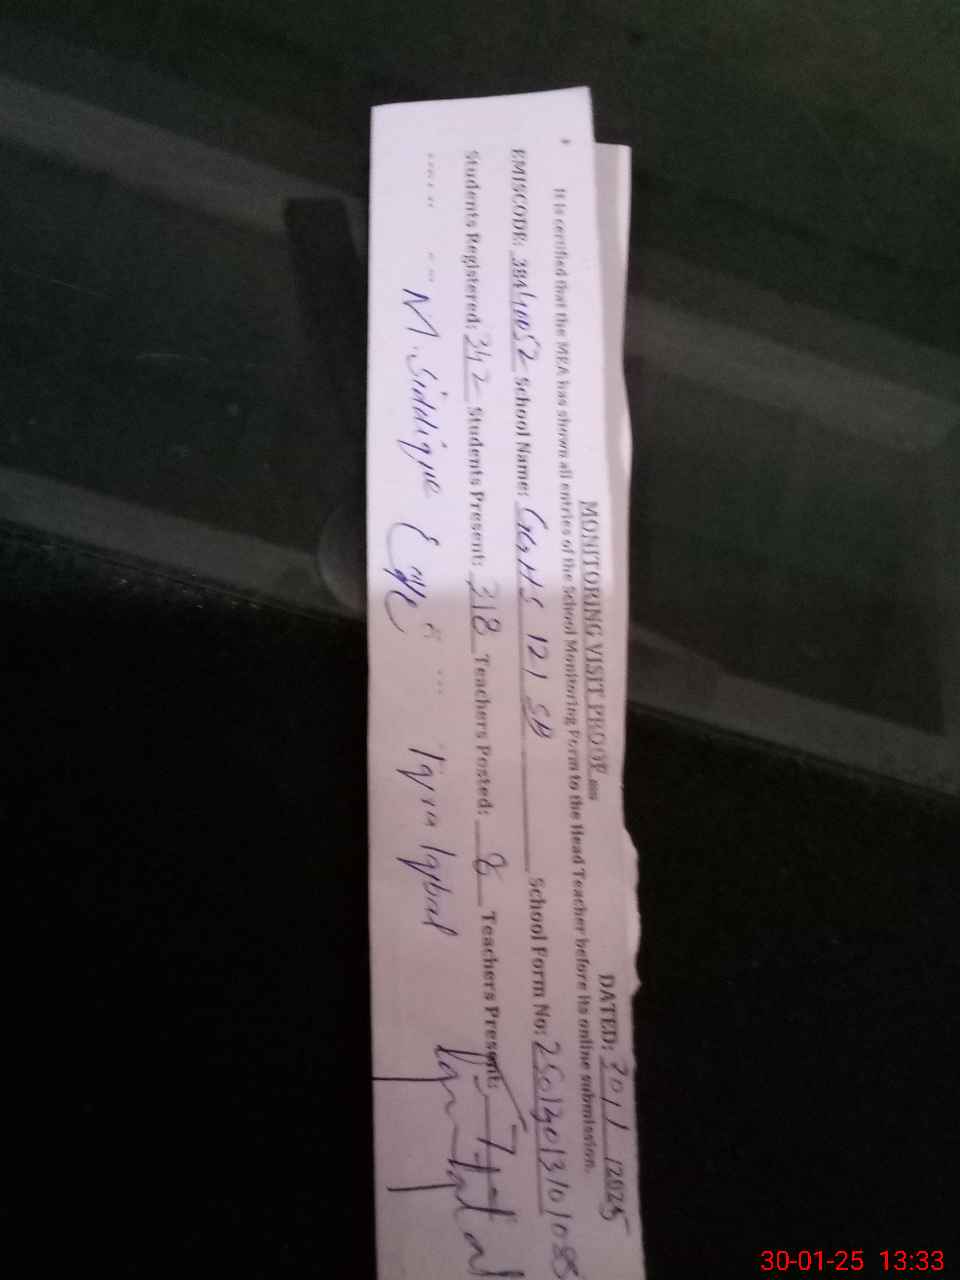 MONITORING VISIT PROOF
DATED: 30/1/2025
It is certified that the MEA has shown all entries of the School Monitoring Form to the Head Teacher before its online submission.
EMISCODE: 38440052 School Name: GGHS 121 SB School Form No:
Students Registered: 342 Students Present: 318 Teachers Posted: 8 Teachers Present: 7
M. Siddique Iqra Iqbal
30-01-25 13:33